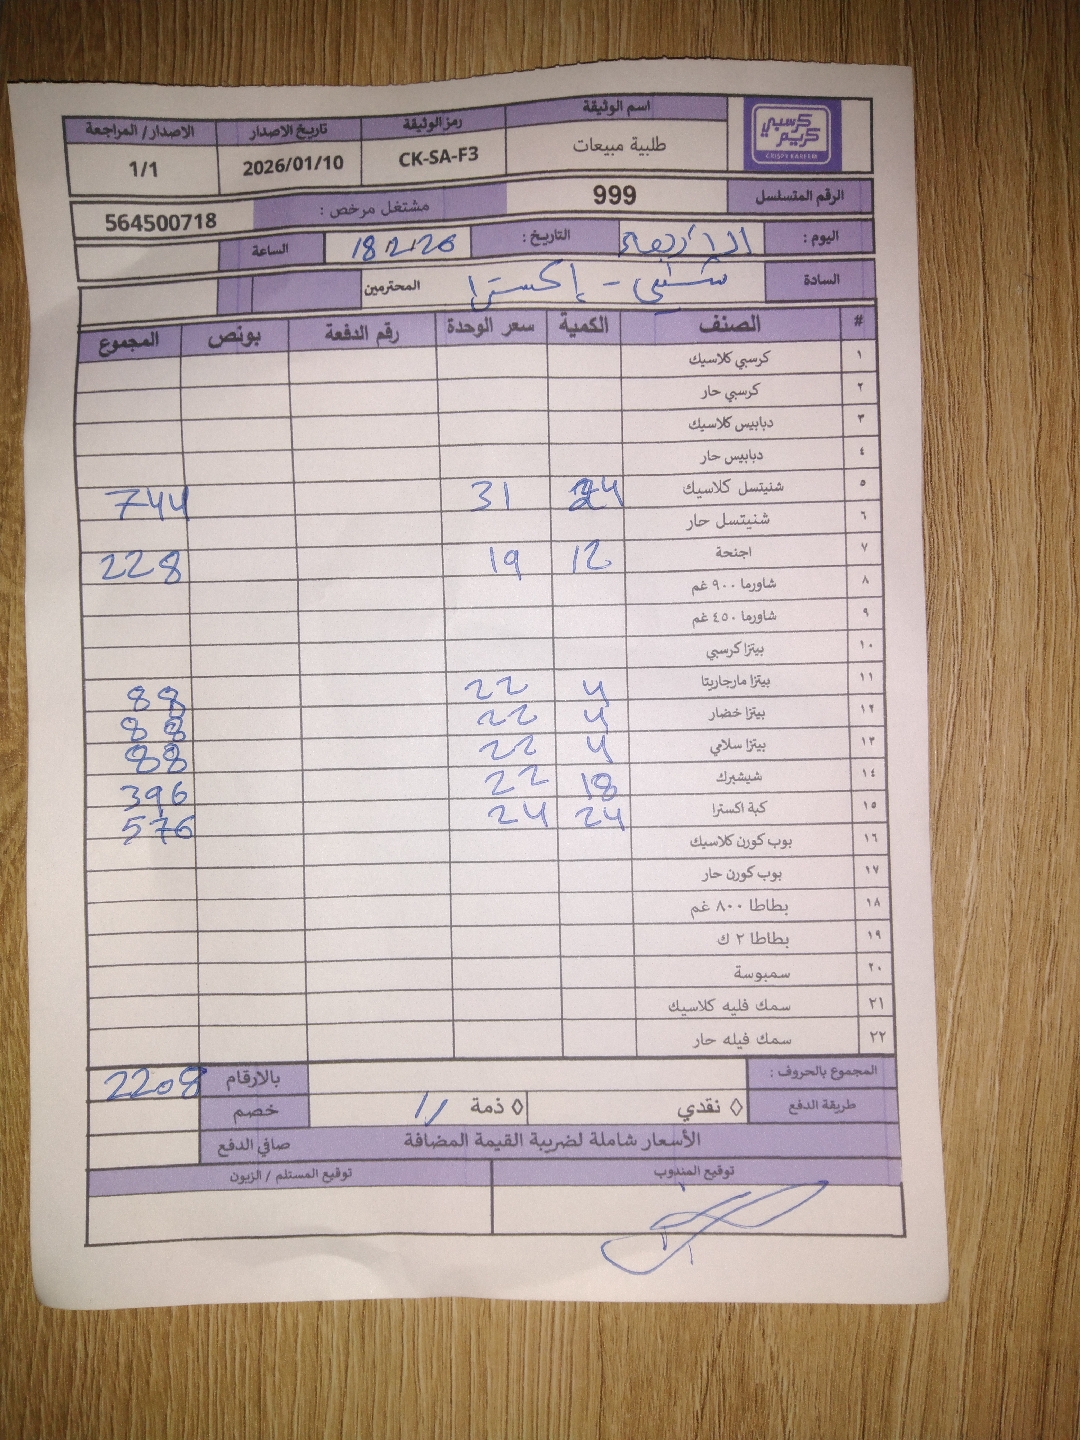 كرسبي كريم
CRISPY KAREEM
اسم الوثيقة رمز الوثيقة تاريخ الاصدار الاصدار / المراجعة
طلبية مبيعات CK-SA-F3 2026/01/10 1/1
الرقم المتسلسل 999 مشتغل مرخص : 564500718
اليوم : الأربعاء التاريخ : 18.2.26 الساعة
السادة شتي - إكسترا المحترمين
# الصنف الكمية سعر الوحدة رقم الدفعة بونص المجموع
١ كرسبي كلاسيك
٢ كرسبي حار
٣ دبابيس كلاسيك
٤ دبابيس حار
٥ شنيتسل كلاسيك 24 31 744
٦ شنيتسل حار
٧ اجنحة 12 19 228
٨ شاورما ٩٠٠ غم
٩ شاورما ٤٥٠ غم
١٠ بيتزا كرسبي
١١ بيتزا مارجاريتا 4 22 88
١٢ بيتزا خضار 4 22 88
١٣ بيتزا سلامي 4 22 88
١٤ شيشبرك 18 22 396
١٥ كبة اكسترا 24 24 576
١٦ بوب كورن كلاسيك
١٧ بوب كورن حار
١٨ بطاطا ٨٠٠ غم
١٩ بطاطا ٢ ك
٢٠ سمبوسة
٢١ سمك فليه كلاسيك
٢٢ سمك فيله حار
المجموع بالحروف : بالارقام 2208
طريقة الدفع ◊ نقدي ◊ ذمة // خصم
الأسعار شاملة لضريبة القيمة المضافة صافي الدفع
توقيع المندوب توقيع المستلم / الزبون